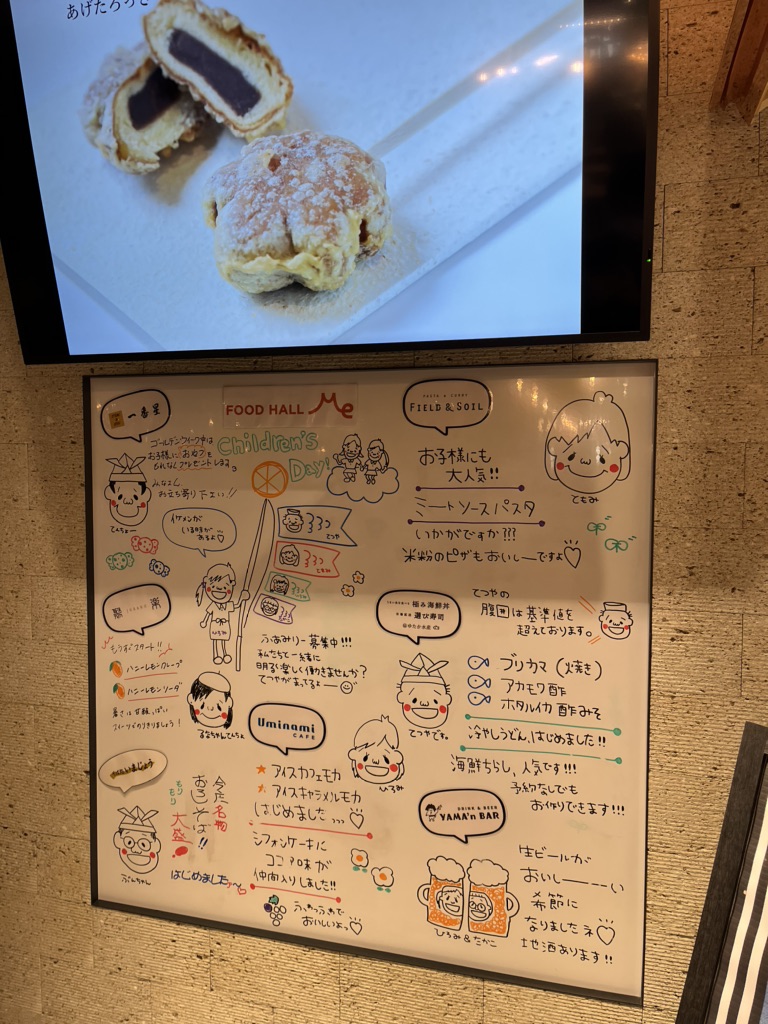 あげたろっき
FOOD HALL Me
Children's
Day!
一番星
ゴールデンウィーク中は
お子様に
プレゼントします。
みなさん
お立ち寄り下さい!!
てんちょー
イケメンが
いる時が…
あるよ♡
てつや
ひろみ
ふぁみりー募集中!!!
私たちと一緒に
明るく楽しく働きませんか?
てつやがまってるよー
PASTA & CURRY
FIELD & SOIL
お子様にも
大人気!!
ミートソースパスタ
いかがですか???
米粉のピザもおいしーですよ♡
てもみ
てつやの
腹囲は基準値を
超えております。
楽
もうすぐスタート!!
ハニーレモンクレープ
ハニーレモンソーダ
スイーツでのりきりましょう!
るなちゃんてんちょ
極み海鮮丼
選び寿司
てつやでぇ。
ブリカマ(焼き)
アカモク酢
ホタルイカ酢みそ
冷やしうどん、はじめました!!
海鮮ちらし、人気です!!!
予約なしでも
お作りできます!!!
Uminami
CAFE
ひろみ
アイスカフェモカ
アイスキャラメルモカ
はじめました…♡
シフォンケーキに
ココア味が
仲間入りしました!!
ふわっふわで
おいしいよっ♡
ぶんちゃん
今だ名物
おろしそば!!
もりもり
大盛
はじめました
DRINK & BEER
YAMA'n BAR
ひろみ&たかこ
生ビールが
おいしーーーい
季節に
なりましたネ♡
地酒あります!!